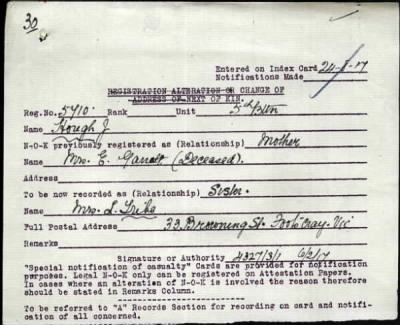 30
Entered on Index Card 24-8-17
Notifications Made
REGISTRATION ALTERATION OR CHANGE OF
ADDRESS OF NEXT OF KIN.
Reg.No. 5710. Rank Unit 5th Btn
Name Hough J
N-O-K previously registered as (Relationship) Mother
Name Mrs. E. Garratt (Deceased).
Address
To be now recorded as (Relationship) Sister.
Name Mrs. L.
Full Postal Address 33 Browning St. Footscray. Vic
Remarks
Signature or Authority 4327/3/1 6/2/17
"Special notification of casualty" Cards are provided for notification
purposes. Legal N-O-K only can be registered on Attestation Papers.
In cases where an alteration of N-O-K is involved the reason therefore
should be stated in Remarks Column.
To be referred to "A" Records Section for recording on card and notifi-
cation of all concerned.